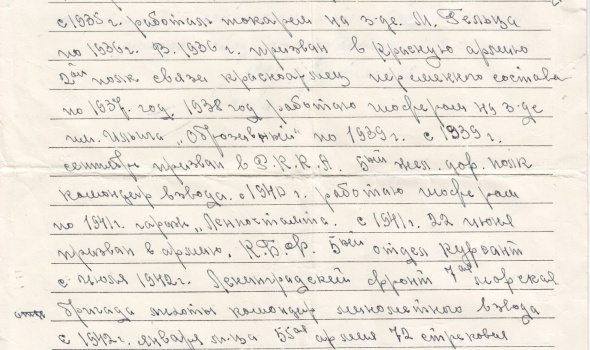 с 1935 г. работал токарем на з-де. М. Гельца
по 1936 г. В. 1936 г. призван в красную армию
2ой полк связи красноармец переменного состава
по 1937 год. 1938 год работаю шофером на з-де
им. Ильича по 1939 г. с 1939 г.
сентябрь призван в Р.К.К.А. 5ый жел. дор. полк
командир взвода. с 1940 г. работаю шофером
по 1941 г. гараж „Ленпочтамта. с 1941 г. 22 июня
призван в армию. К.Б.Ф. 5ый отдел курсант
с июля 1942 г. Ленинградский фронт 7ая морская
бригада пехоты командир минометного взвода
с 1942 г. января м-ца 55ая армия 72 стрековая